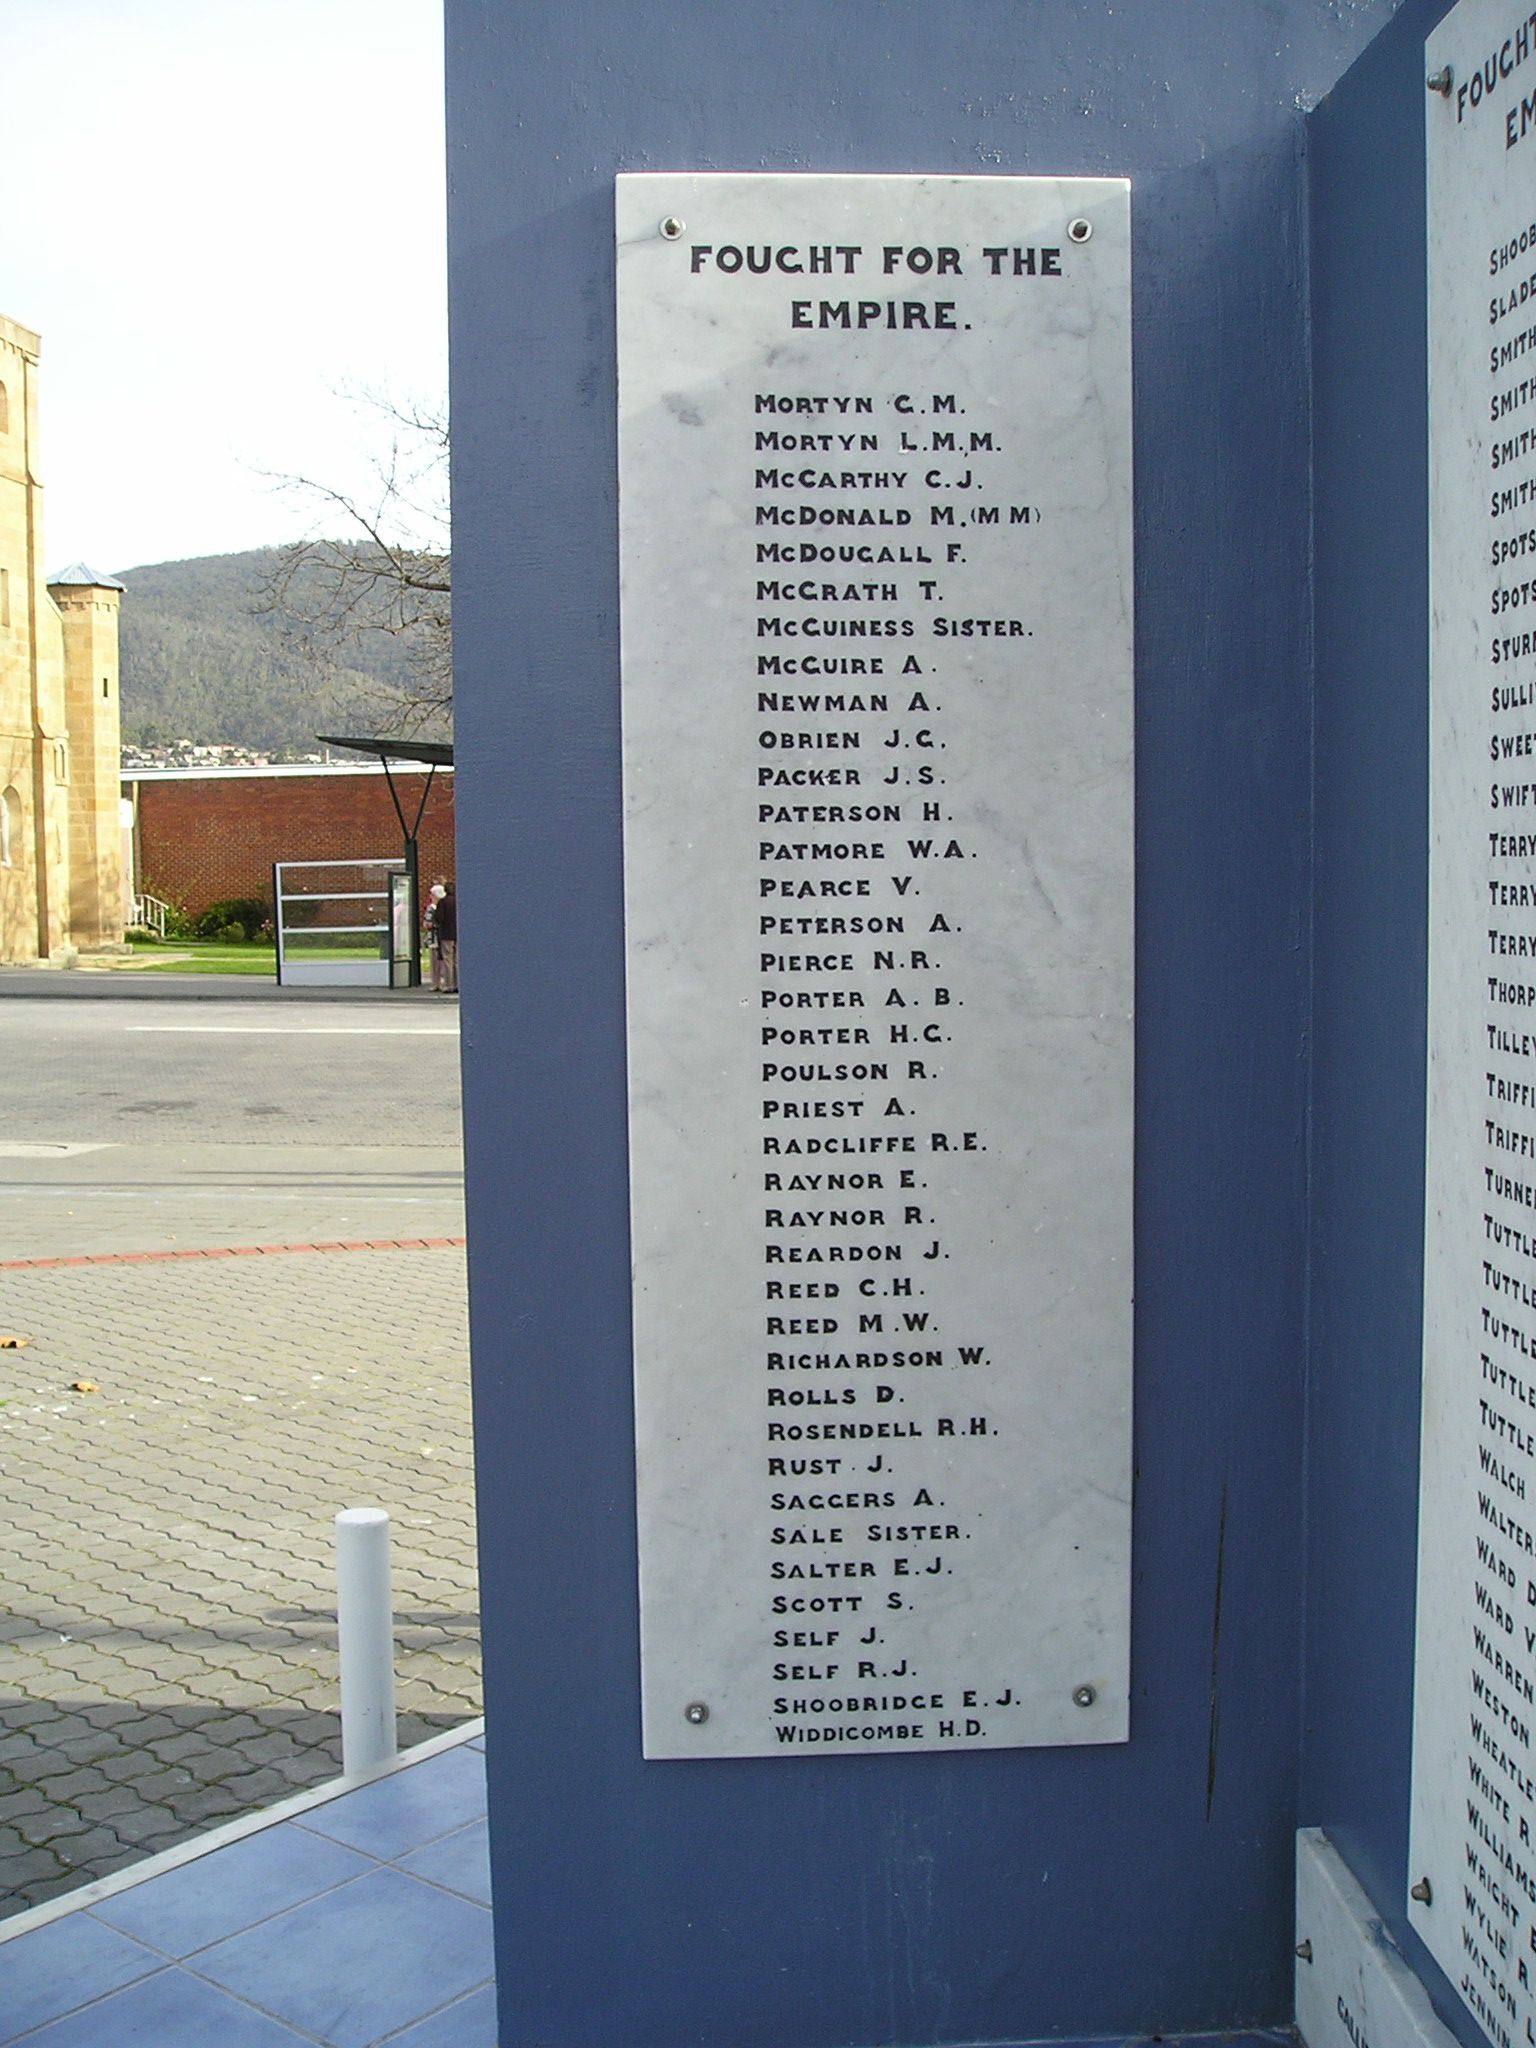 FOUGHT FOR THE
EMPIRE.
MORTYN C.M.
MORTYN L.M.M.
MCCARTHY C.J.
MCDONALD M.(MM)
MCDOUGALL F.
MCGRATH T.
MCGUINESS SISTER.
MCGUIRE A.
NEWMAN A.
OBRIEN J.G.
PACKER J.S.
PATERSON H.
PATMORE W.A.
PEARCE V.
PETERSON A.
PIERCE N.R.
PORTER A.B.
PORTER H.G.
POULSON R.
PRIEST A.
RADCLIFFE R.E.
RAYNOR E.
RAYNOR R.
REARDON J.
REED C.H.
REED M.W.
RICHARDSON W.
ROLLS D.
ROSENDELL R.H.
RUST J.
SAGGERS A.
SALE SISTER.
SALTER E.J.
SCOTT S.
SELF J.
SELF R.J.
SHOOBRIDGE E.J.
WIDDICOMBE H.D.
FOUGHT
EM
SHOOB
SLADE
SMITH
SMITH
SMITH
SMITH
SPOTS
SPOTS
STUR
SULLI
SWEET
SWIFT
TERRY
TERRY
TERRY
THORP
TILLEY
TRIFFI
TRIFFI
TURNE
TUTTLE
TUTTLE
TUTTLE
TUTTLE
TUTTLE
WALCH
WALTER
WARD D
WARD V
WARREN
WESTON
WHEATLE
WHITE R.
WILLIAMS
WRIGHT E
WYLIE R.
WATSON L
JENNIN